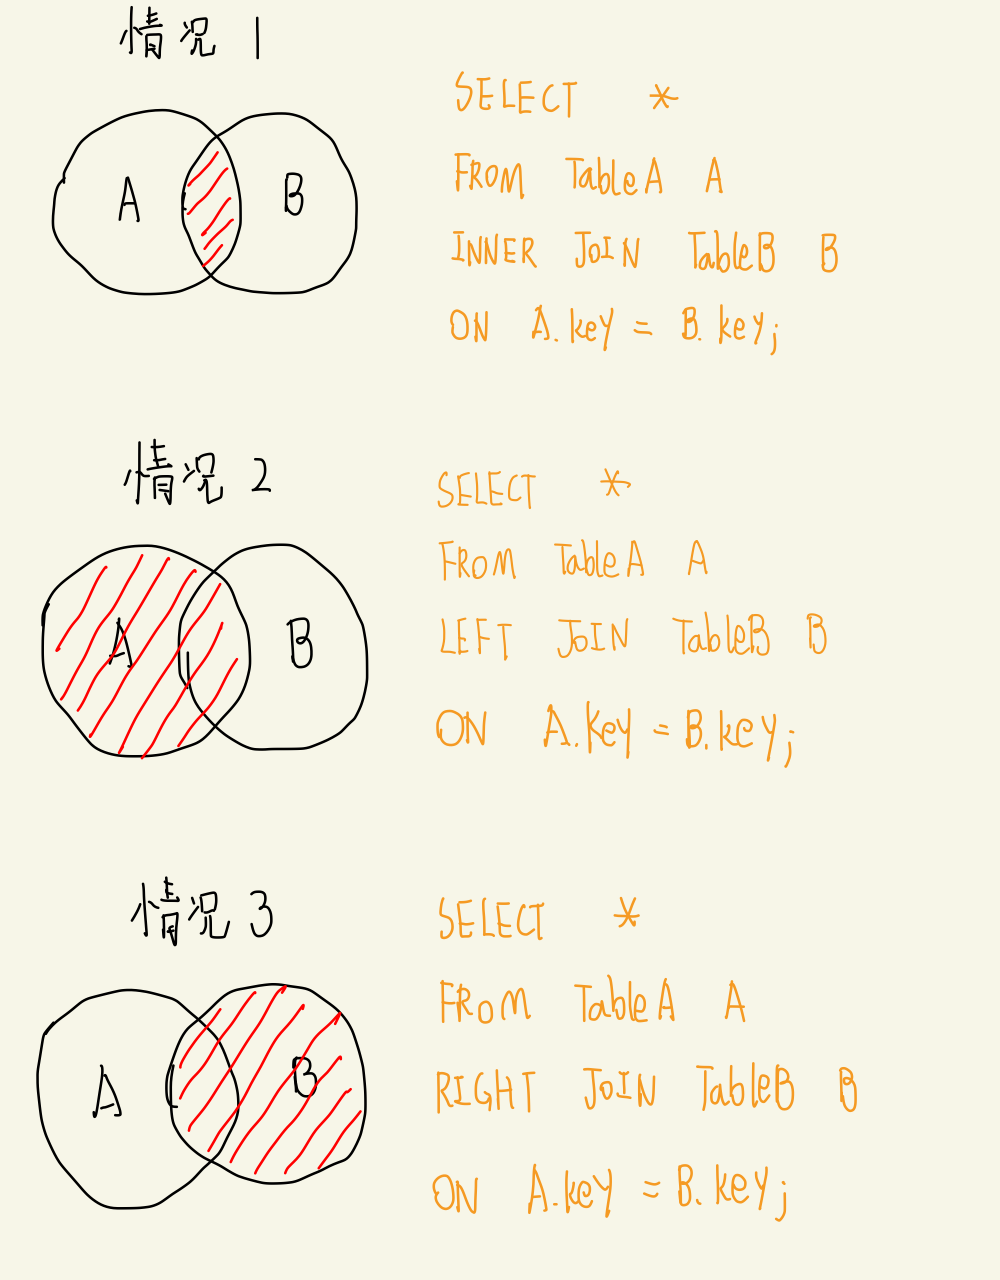 情况 1
A
B
SELECT *
FROM TableA A
INNER JOIN TableB B
ON A.key = B.key;
情况 2
A
B
SELECT *
FROM TableA A
LEFT JOIN TableB B
ON A.key = B.key;
情况 3
A
B
SELECT *
FROM TableA A
RIGHT JOIN TableB B
ON A.key = B.key;